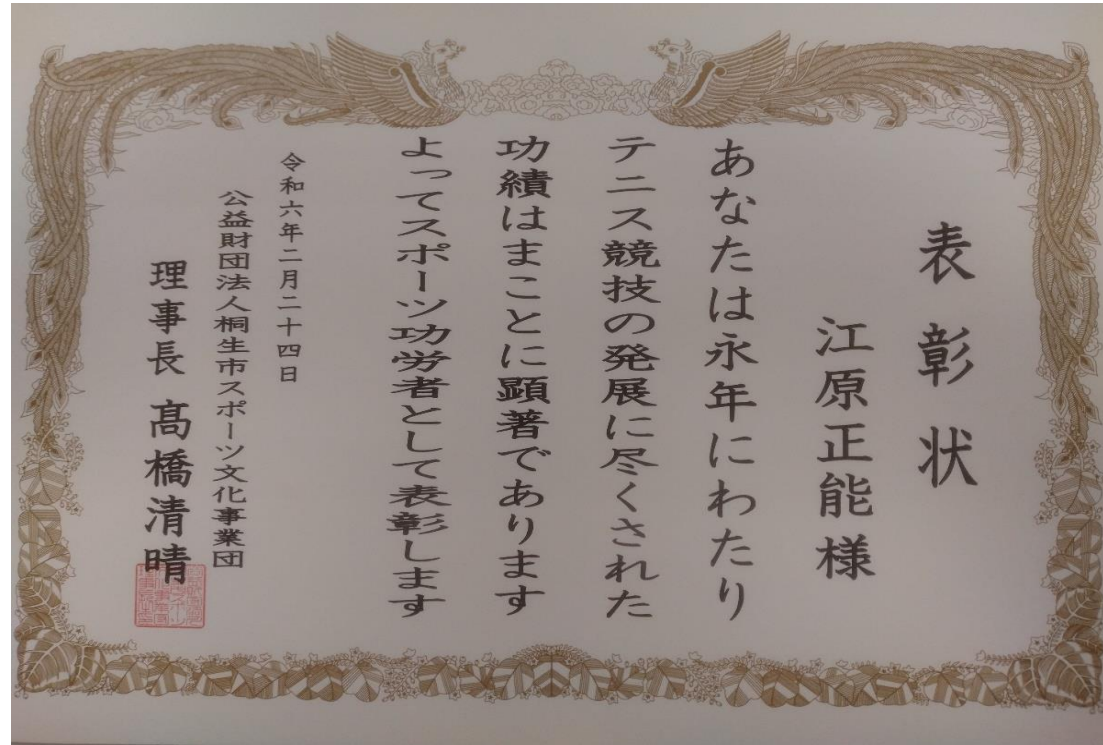 表彰状
江原正能様
あなたは永年にわたり
テニス競技の発展に尽くされた
功績はまことに顕著であります
よってスポーツ功労者として表彰します
令和六年二月二十四日
公益財団法人桐生市スポーツ文化事業団
理事長 髙橋清晴